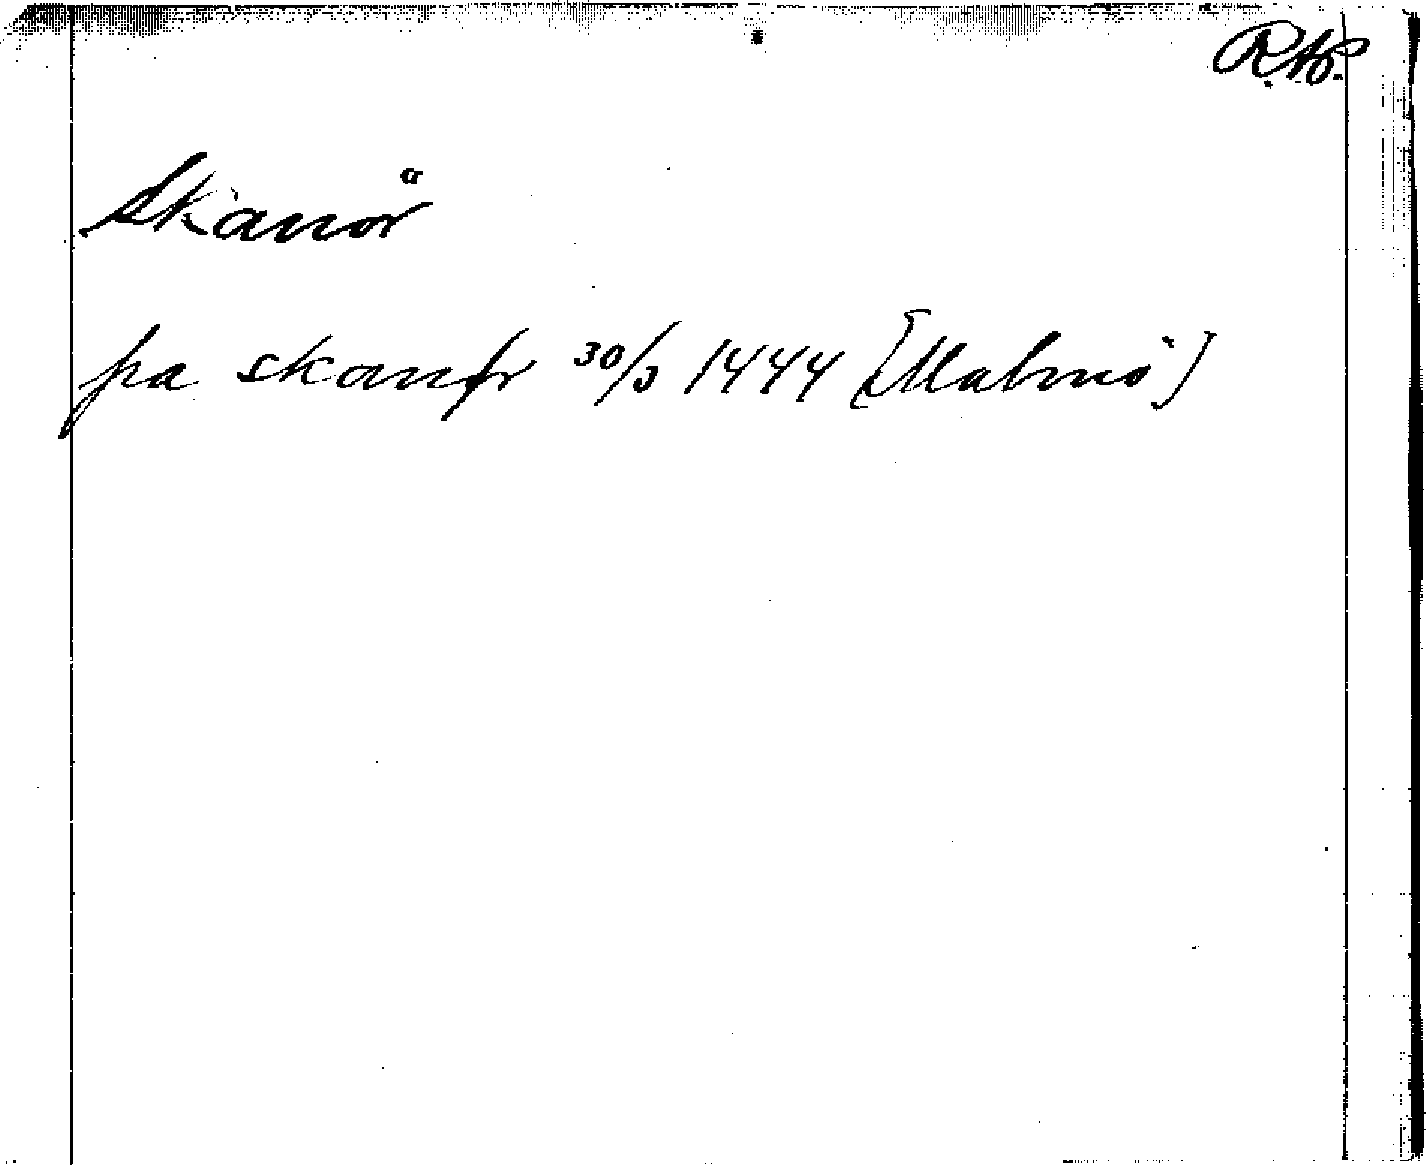 R.Ap.
Skanör
pa skanør 30/3 1444 [Malmö]